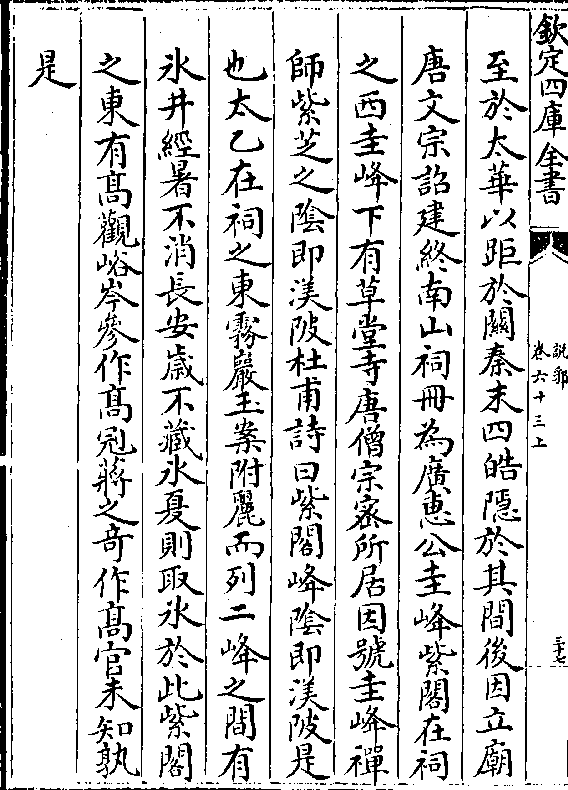 欽定四庫全書
說郛
卷六十三上
三十七
至於太華以距於關秦末四皓隠於其間後因立廟
唐文宗詔建終南山祠冊為廣惠公圭峰紫閣在祠
之西圭峰下有草堂寺唐僧宗密所居因號圭峰禪
師紫芝之陰即渼陂杜甫詩曰紫閣峰陰即渼陂是
也太乙在祠之東霧巖玉案附麗而列二峰之間有
氷井經暑不消長安歲不藏氷夏則取氷於此紫閣
之東有髙觀峪岑參作髙冠蔣之竒作髙官未知孰
是